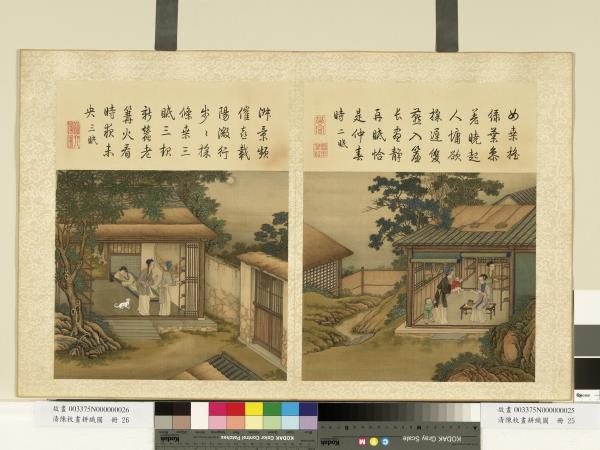 女桑稚
綠葉參
差曉起
人慵欲
採遲雙
燕入簾
長晝靜
再眠恰
是仲春
時 二眠
淑景頻
催春載
陽微行
步々採
條桑三
眠三起
新蠶老
篝火看
時夜未
央 三眠
故畫 003375N000000026
清陳枚畫耕織圖 冊 26
故畫 003375N000000025
清陳枚畫耕織圖 冊 25
KODAK Color Control Patches
Kodak
KODAK Gray Scale
Kodak